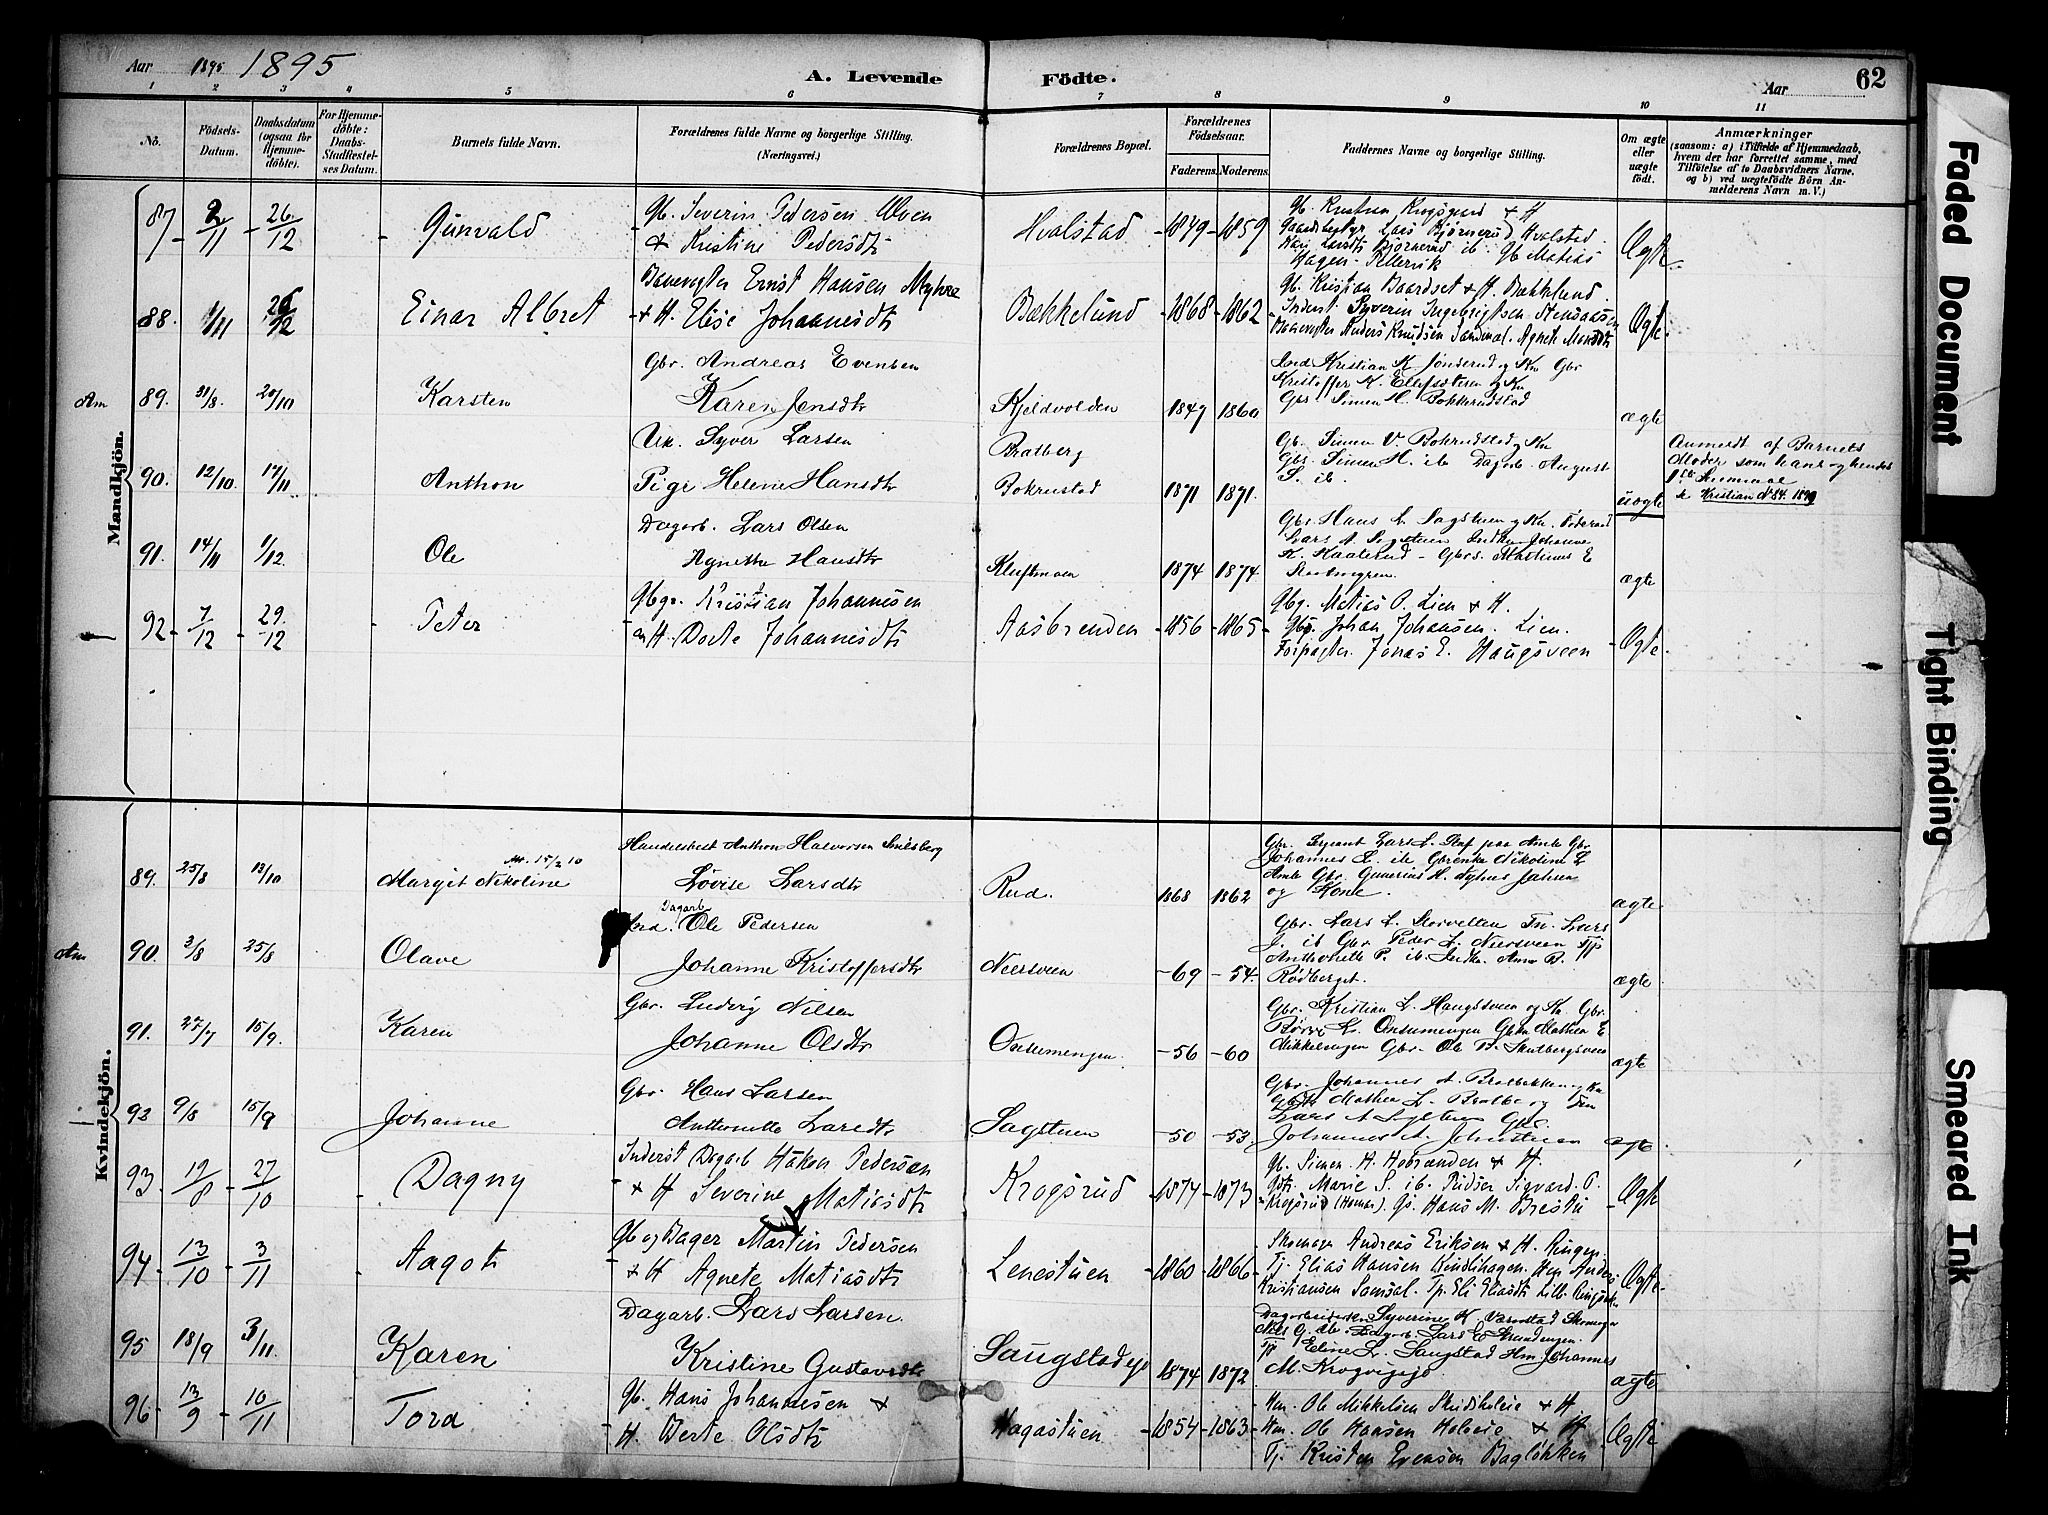 Aar 1895 1895
A. Levende Födte.
Aar 62
1 2 3 4 5 6 7 8 9 10 11
No.
Födsels-Datum.
Daabsdatum (ogsaa for Hjemmedöbte).
For Hjemmedöbte: Daabs-Stadfestelses Datum.
Barnets fulde Navn.
Forældrenes fulde Navne og borgerlige Stilling. (Næringsvei.)
Forældrenes Bopæl.
Forældrenes Födselsaar.
Faderens. Moderens.
Faddernes Navne og borgerlige Stilling.
Om ægte eller uægte födt.
Anmærkninger
(saasom: a) i Tilfælde af Hjemmedaab,
hvem der har forrettet samme, med
Tilföielse af to Daabsvidners Navne.
og b) ved uægtefödte Börn An-
melderens Navn m. V.)
Mandkjön.
87 2/11 26/12 Gunvald
Gb. Severin Pedersen Ulven
& Kristine Pedersdtr
Hvalstad 1849 1859
Gb. Kristian Krogsgaard & H
Gaardbestyr. Lars Bjørnerud Hvalstad
Kari Larsdtr Bjørnerud ib. Gb Matias
Hagen
Ægte
88. 1/11 26/12 Einar Albret
Ernst Hansen Myhre
& H. Elise Johannesdtr
Bækkelund 1868 1862
Gb. Kristian Baardset & H. Bækkelund.
Inderst Syverin Ingebrigtsen Stensaasen
Anders Knudsen Agnete
Ægte
Am 89. 31/8. 20/10 Karsten
Gbr. Andreas Evensen
Karen Jensdtr
Kjeldvolden 1847 1860
Ind Kristian K. Jønserud og Kn Gbr
Kristoffer K. Ellefsæteren og Kn
Gbr. Simen H. Bokkerudstad
ægte
90. 12/10. 17/11 Anthon
Uk. Syver Larsen
Pige Helene Hansdtr
Bratberg
Bokrustad 1871 1871.
Gb. Simen V. Bokrudstad og Kn
Gbr. Simen H. ib Dagarb. August
S. ib.
uægte
Anmeldt af Barnets
Moder som hans og hendes
1ste
Kristian N. 84. 1893
91. 14/11 1/12 Ole
Dagarb. Lars Olsen
Agnethe Hansdtr
Kluftmoen 1874 1874
Gbr. Hans L. Sagstuen og Kn. Føderaad
Lars A. Sagstuen Johanne
K. Haalerud - Gbrs. Mathinus E
ægte
92 7/12 29/12 Peter
Gbgr. Kristian Johannesen
& H. Dorte Johannesdtr
Aasbrenden 1856 1865
Gbg. Matias P. Lien & H.
Gbg. Johan Johansen. Lien.
Forpagter. Jonas E. Haugsveen
Ægte
Kvindekjön.
89. 25/8 13/10 Margit Nikoline
Handelsbest Anthon Halvorsen Smidsberg
Lovise Larsdtr
Rud. 1868 1862
Gbr. Sergeant Lars L. Staf paa Amle Gbr
Johannes L. ib Gbrenke Nikoline L
Amle Gbr. Gunerius H. Nyhus Jahren
og Kone.
ægte
Am 90. 3/8 25/8 Olave
Ind. Dagarb Ole Pedersen
Johanne Kristoffersdtr
Neersveen -69 -54.
Gbr. Lars L. Storvelten Fn. Lars
J. ib Gbr Peder L. Neersveen Tjp
Anthonette P. ib. Indk. Anne B.
Rødberget.
ægte
91. 27/7 15/9. Karen
Gbr. Ludvig Nilsen
Johanne Olsdtr
Onsumengen -56 -60
Gbr. Kristian L. Haugsveen og Kn. Gbr.
Børre L. Onsumengen Gbkn Mathea E
Mikkelengen Gbr. Ole P. Skulbergsveen
ægte
92 9/8 15/9 Johanne
Gbr Hans Larsen
Anthonette Larsdtr
Sagstuen -50 -53
Gbr. Johannes A. Bratbakken og Kn
Mathea L. Bratbe og Fm
Lars A. Gbr.
Johannes A.
ægte
93. 19/8 27/10 Dagny
Inderst Dagarb Håkon Pedersen
& H Severine Matiasdtr
Krogsrud 1874 1873
Gb. Simen A. & H.
Gdtr. Marie S. ib. Sigvard P.
Krogsrud (Hamar). Hans M. Brestu
Ægte
94 13/10 3/11 Aagot
Gb og Bager Martin Pedersen
& H Agnete Matiasdtr
Lenestuen 1860 1866
Skomager Andreas Eriksen & H. Ringen.
Tj. Elias Hansen Kindlihagen. Hm Anders
Kristiansen Samsal. Tp. Eli Eliasdtr Lill
Ægte
95 18/9 3/11. Karen
Dagarb. Lars Larsen.
Kristine Gustavsdtr
Saugstadeje 1874 1872
Dagarbeider Syverine K. Skomager
Nils G. ib. Dagarb. Lars E. Strandengen.
Tp Eline L. Saugstad Hm. Johannes
M. Krogvigeje
ægte
96 13/9 10/11 Tora
Gb. Hans Johannesen &
H. Berte Olsdtr
Hagastuen 1854 1863
Hm. Ole Mikkelsen & H
Hm. Ole Hansen Holeie & H
Tj. Kristen Evensen Bagløkken
Ægte
Faded Document
Tight Binding
Smeared Ink